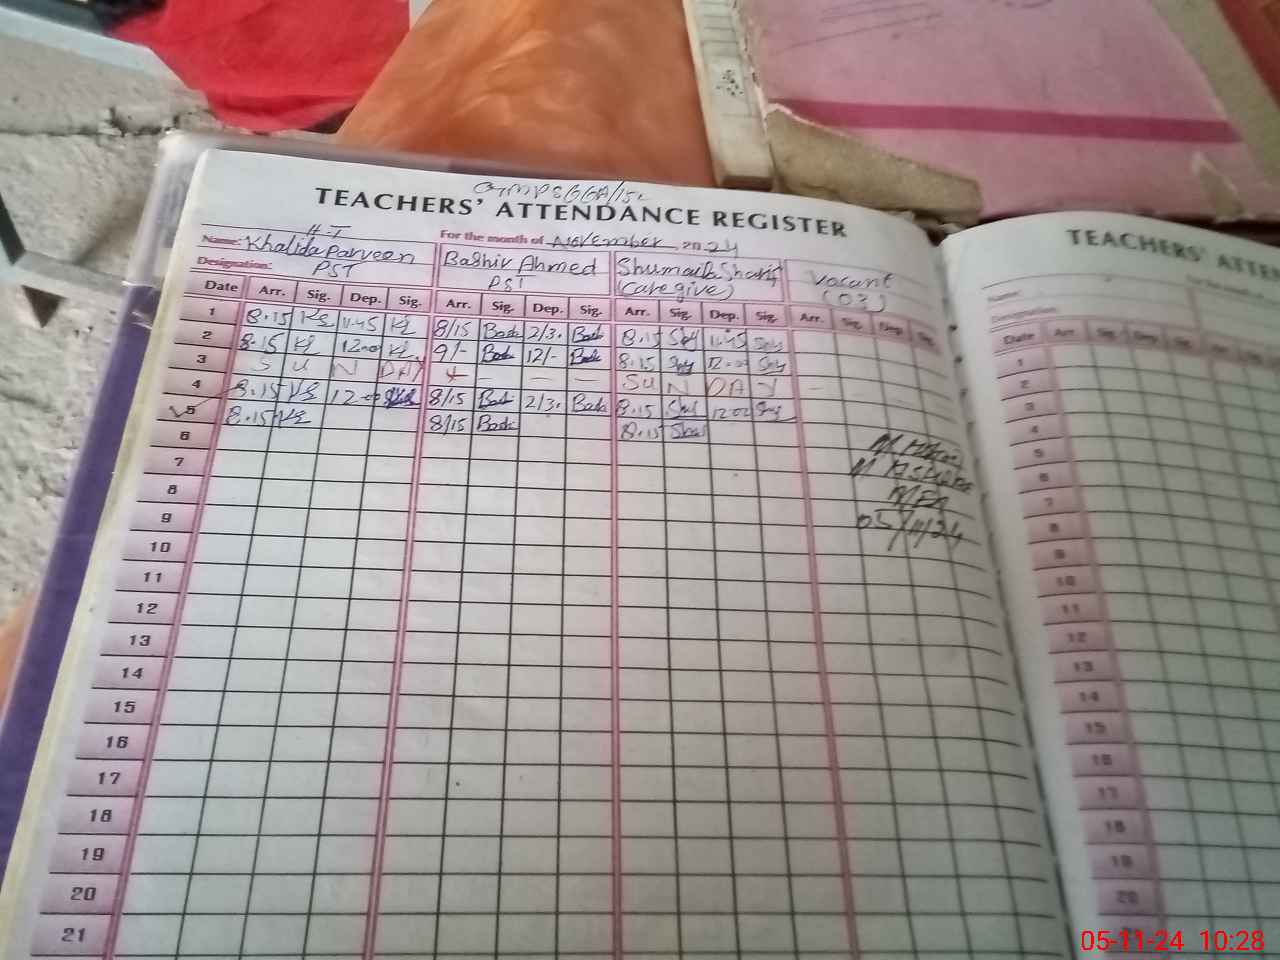 GMPS GGA/15L
TEACHERS' ATTENDANCE REGISTER
H.T
For the month of November 2024
Name: Khalida Parveen Bashir Ahmed Shumaila Sharif Vacant
Designation: PST PST (Care give) (03)
Date Arr. Sig. Dep. Sig. Arr. Sig. Dep. Sig. Arr. Sig. Dep. Sig. Arr. Sig. Dep. Sig.
1 8.15 11.45 8/15 Bash 2/3. Bash 8.15 11.45
2 8.15 12.00 9/- Bash 12/- Bash 8.15 12.00
3 S U N DAY SU N DA Y
4 8.15 12.00 8/15 Bash 2/3. Bash 8.15 1202
5 8.15 8/15 Bash 8.15
6
7
8
9
10
11
12
13
14
15
16
17
18
19
20
21
MEA
05/11/24
TEACHERS' ATTEN
Name:
Designation:
Date Arr. Sig. Dep. Sig.
1
2
3
4
5
6
7
8
9
10
11
12
13
14
15
16
17
18
19
20
05-11-24 10:28